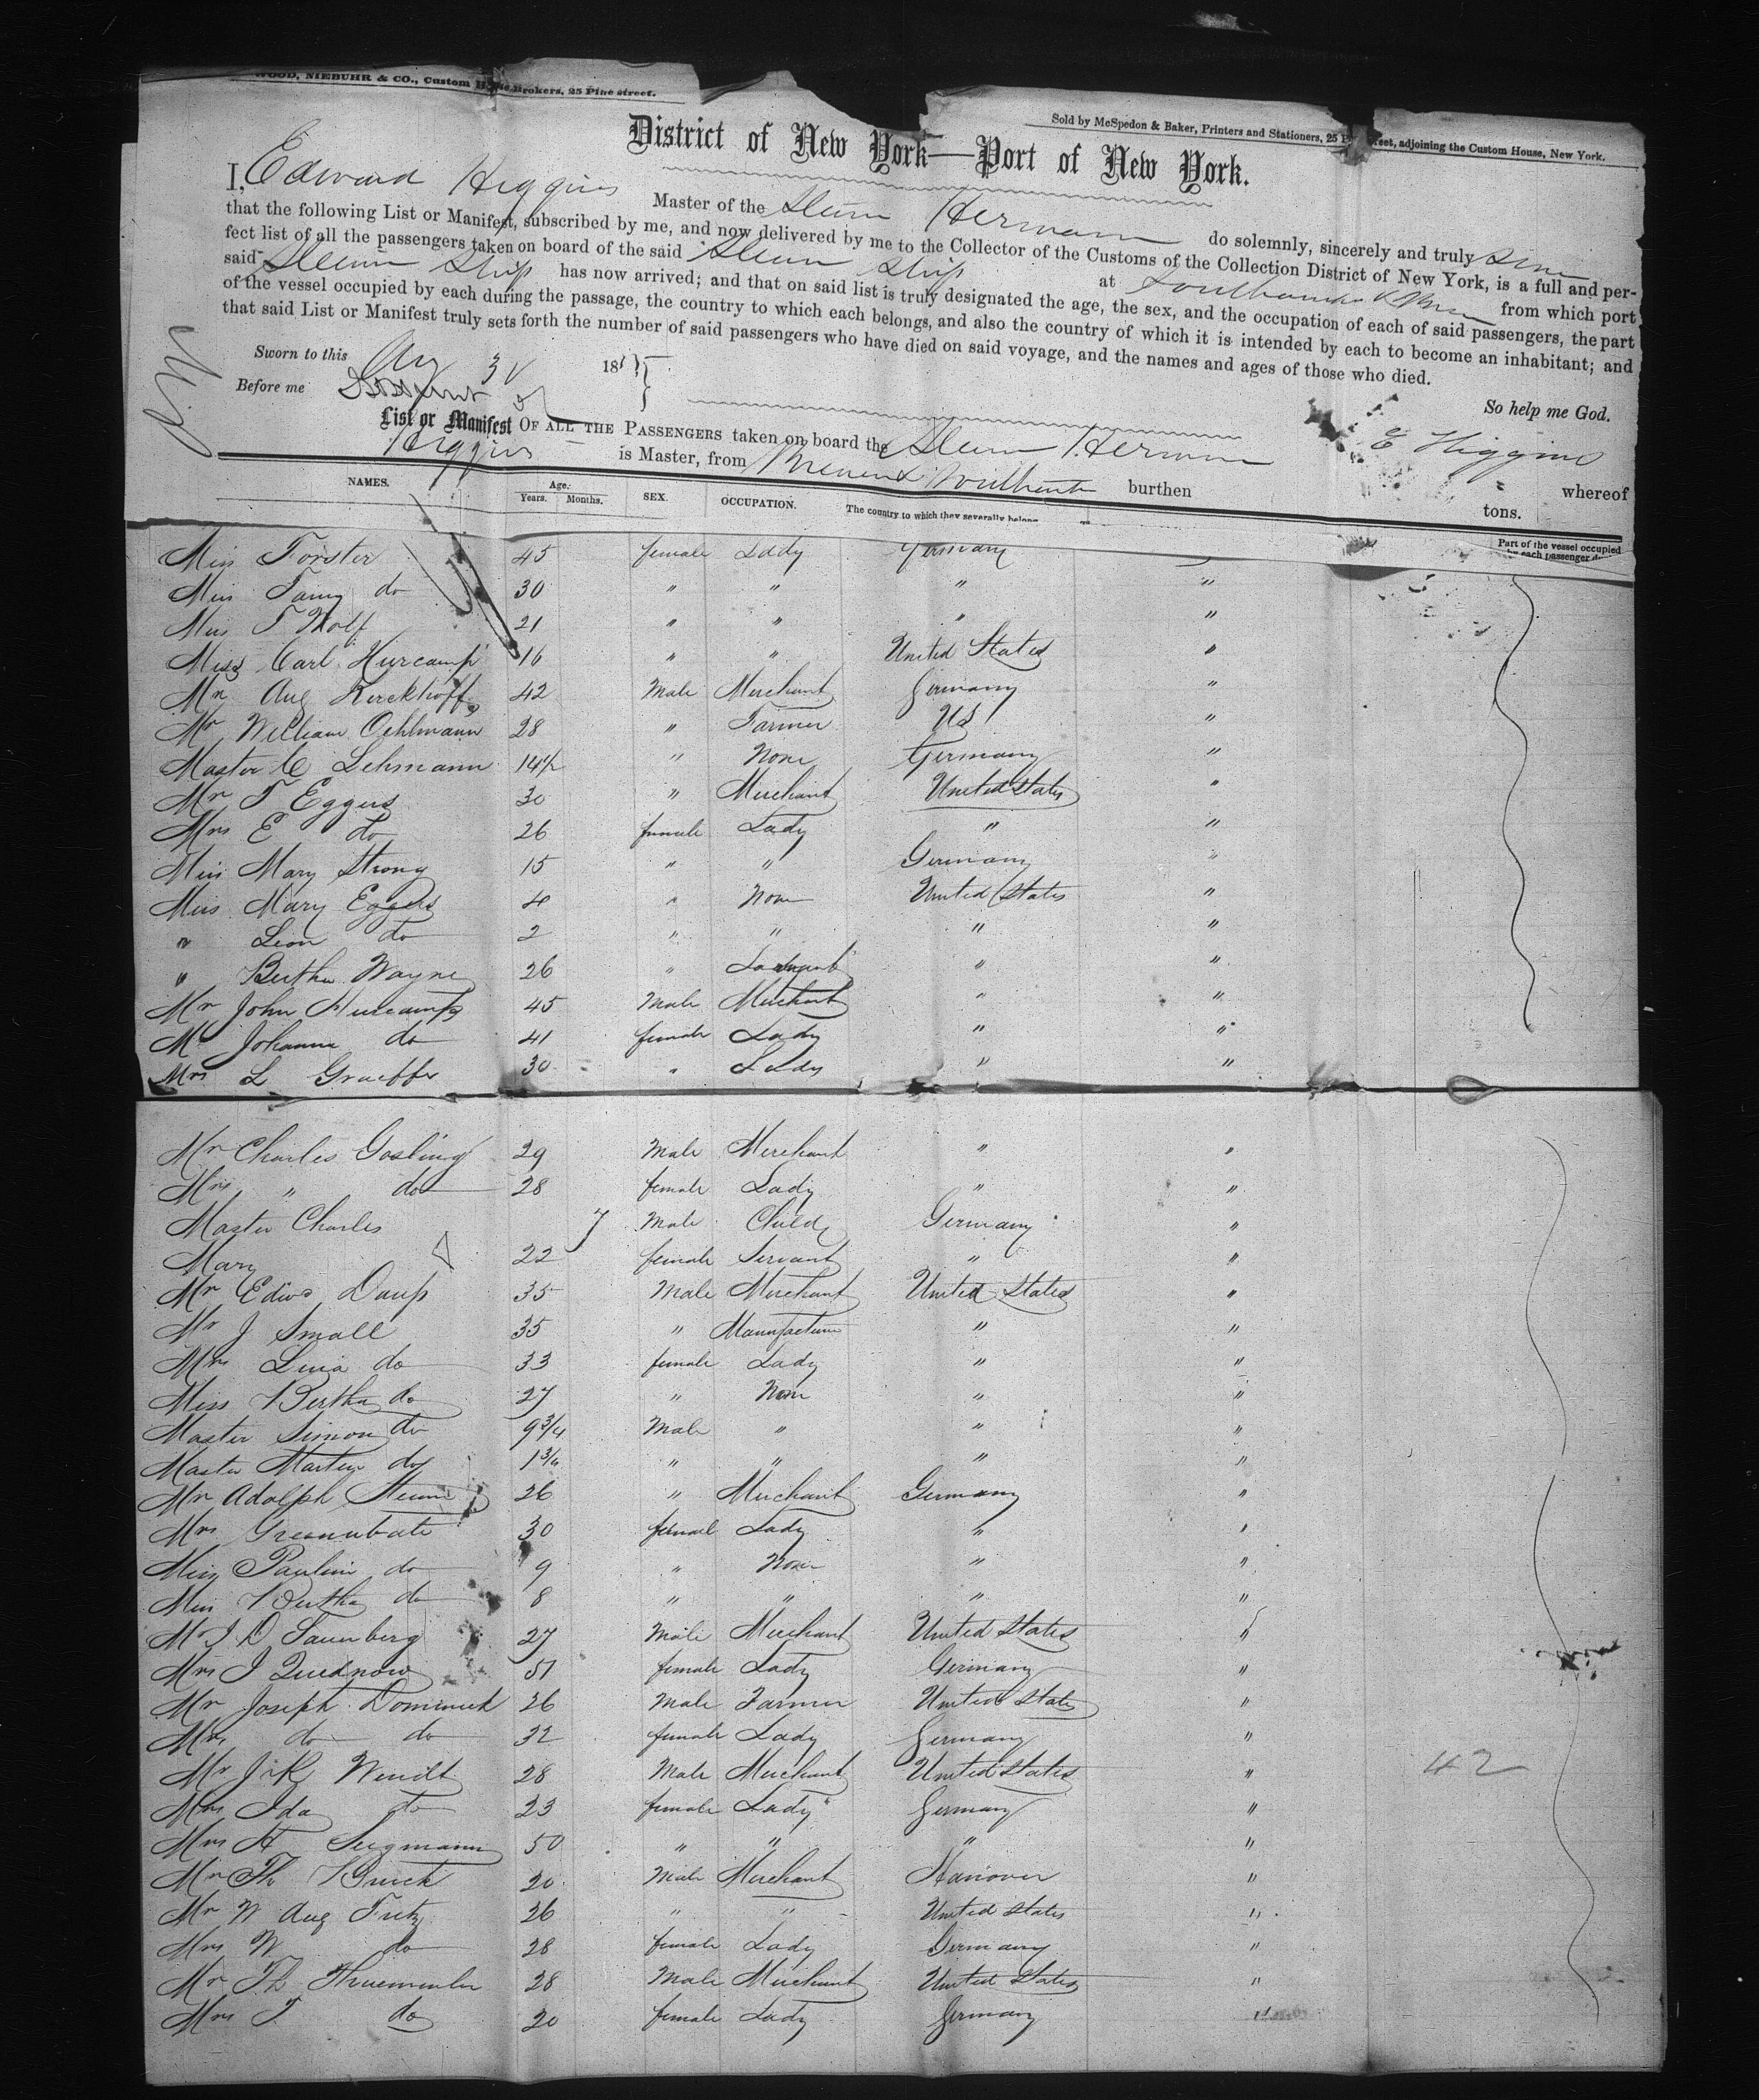 WOOD, NIEBUHR & CO., Custom House Brokers, 25 Pine street.
Sold by McSpedon & Baker, Printers and Stationers, 25 Pine street, adjoining the Custom House, New York.
District of New York—Port of New York.
I, Edward Higgins Master of the Steam Hermann do solemnly, sincerely and truly
that the following List or Manifest, subscribed by me, and now delivered by me to the Collector of the Customs of the Collection District of New York, is a full and per-
fect list of all the passengers taken on board of the said Steam Ship at from which port
said Steam Ship has now arrived; and that on said list is truly designated the age, the sex, and the occupation of each of said passengers, the part
of the vessel occupied by each during the passage, the country to which each belongs, and also the country of which it is intended by each to become an inhabitant; and
that said List or Manifest truly sets forth the number of said passengers who have died on said voyage, and the names and ages of those who died.
So help me God.
Sworn to this Aug 18
Before me
E Higgins
List or Manifest OF ALL THE PASSENGERS taken on board the Steam Hermann whereof
Higgins is Master, from Bremen & burthen tons.
NAMES. Age. Years. Months. SEX. OCCUPATION. The country to which they severally belong Part of the vessel occupied by each passenger
Miss Forster 45 female Lady Germany
Miss Fanny do 30 " " " "
Miss F Wolf 21 " " " "
Miss Carl Hurcamp 16 " " United States "
Mr Aug Kerckhoff 42 Male Merchant Germany "
Mr William Oehlmann 28 " Farmer US "
Master C Lehmann 14½ " None Germany "
Mr F Eggers 30 " Merchant United States "
Mrs E do 26 female Lady " "
Miss Mary Strong 15 " " Germany "
Miss Mary Eggers 4 " None United States "
" Leon do 2 " " " "
" Bertha Wayne 26 " " "
Mr John Hurcamp 45 Male Merchant " "
M Johanna do 41 female Lady " "
Mrs L Graeffe 30 " Lady " "
Mr Charles Gosling 29 Male Merchant " "
Mrs " do 28 female Lady " "
Master Charles 7 Male Child Germany "
Mary 22 female Servant " "
Mr Edwd Daup 35 Male Merchant United States "
Mr J Small 35 " Manufacturer " "
Mrs Lina do 33 female Lady " "
Miss Bertha do 27 " None " "
Master Simon do 9¾ Male " " "
Master Martin do 1¾ " " " "
Mr Adolph 26 " Merchant Germany "
Mrs 30 female Lady " "
Miss Pauline do 9 " None " "
Miss Bertha do 8 " " " "
Mr D Sauerberg 27 Male Merchant United States "
Mrs J Quednow 51 female Lady Germany "
Mr Joseph Dominick 26 Male Farmer United States "
Mrs do do 32 female Lady Germany "
Mr Wendt 28 Male Merchant United States "
Mrs Ida do 23 female Lady Germany "
42
Mrs H Seegmann 50 " " " "
Mr Th 20 Male Merchant Hanover "
Mr W Aug Fritz 26 " " United States "
Mrs W do 28 female Lady Germany "
Mr Th 28 Male Merchant United States "
Mrs T do 20 female Lady Germany "